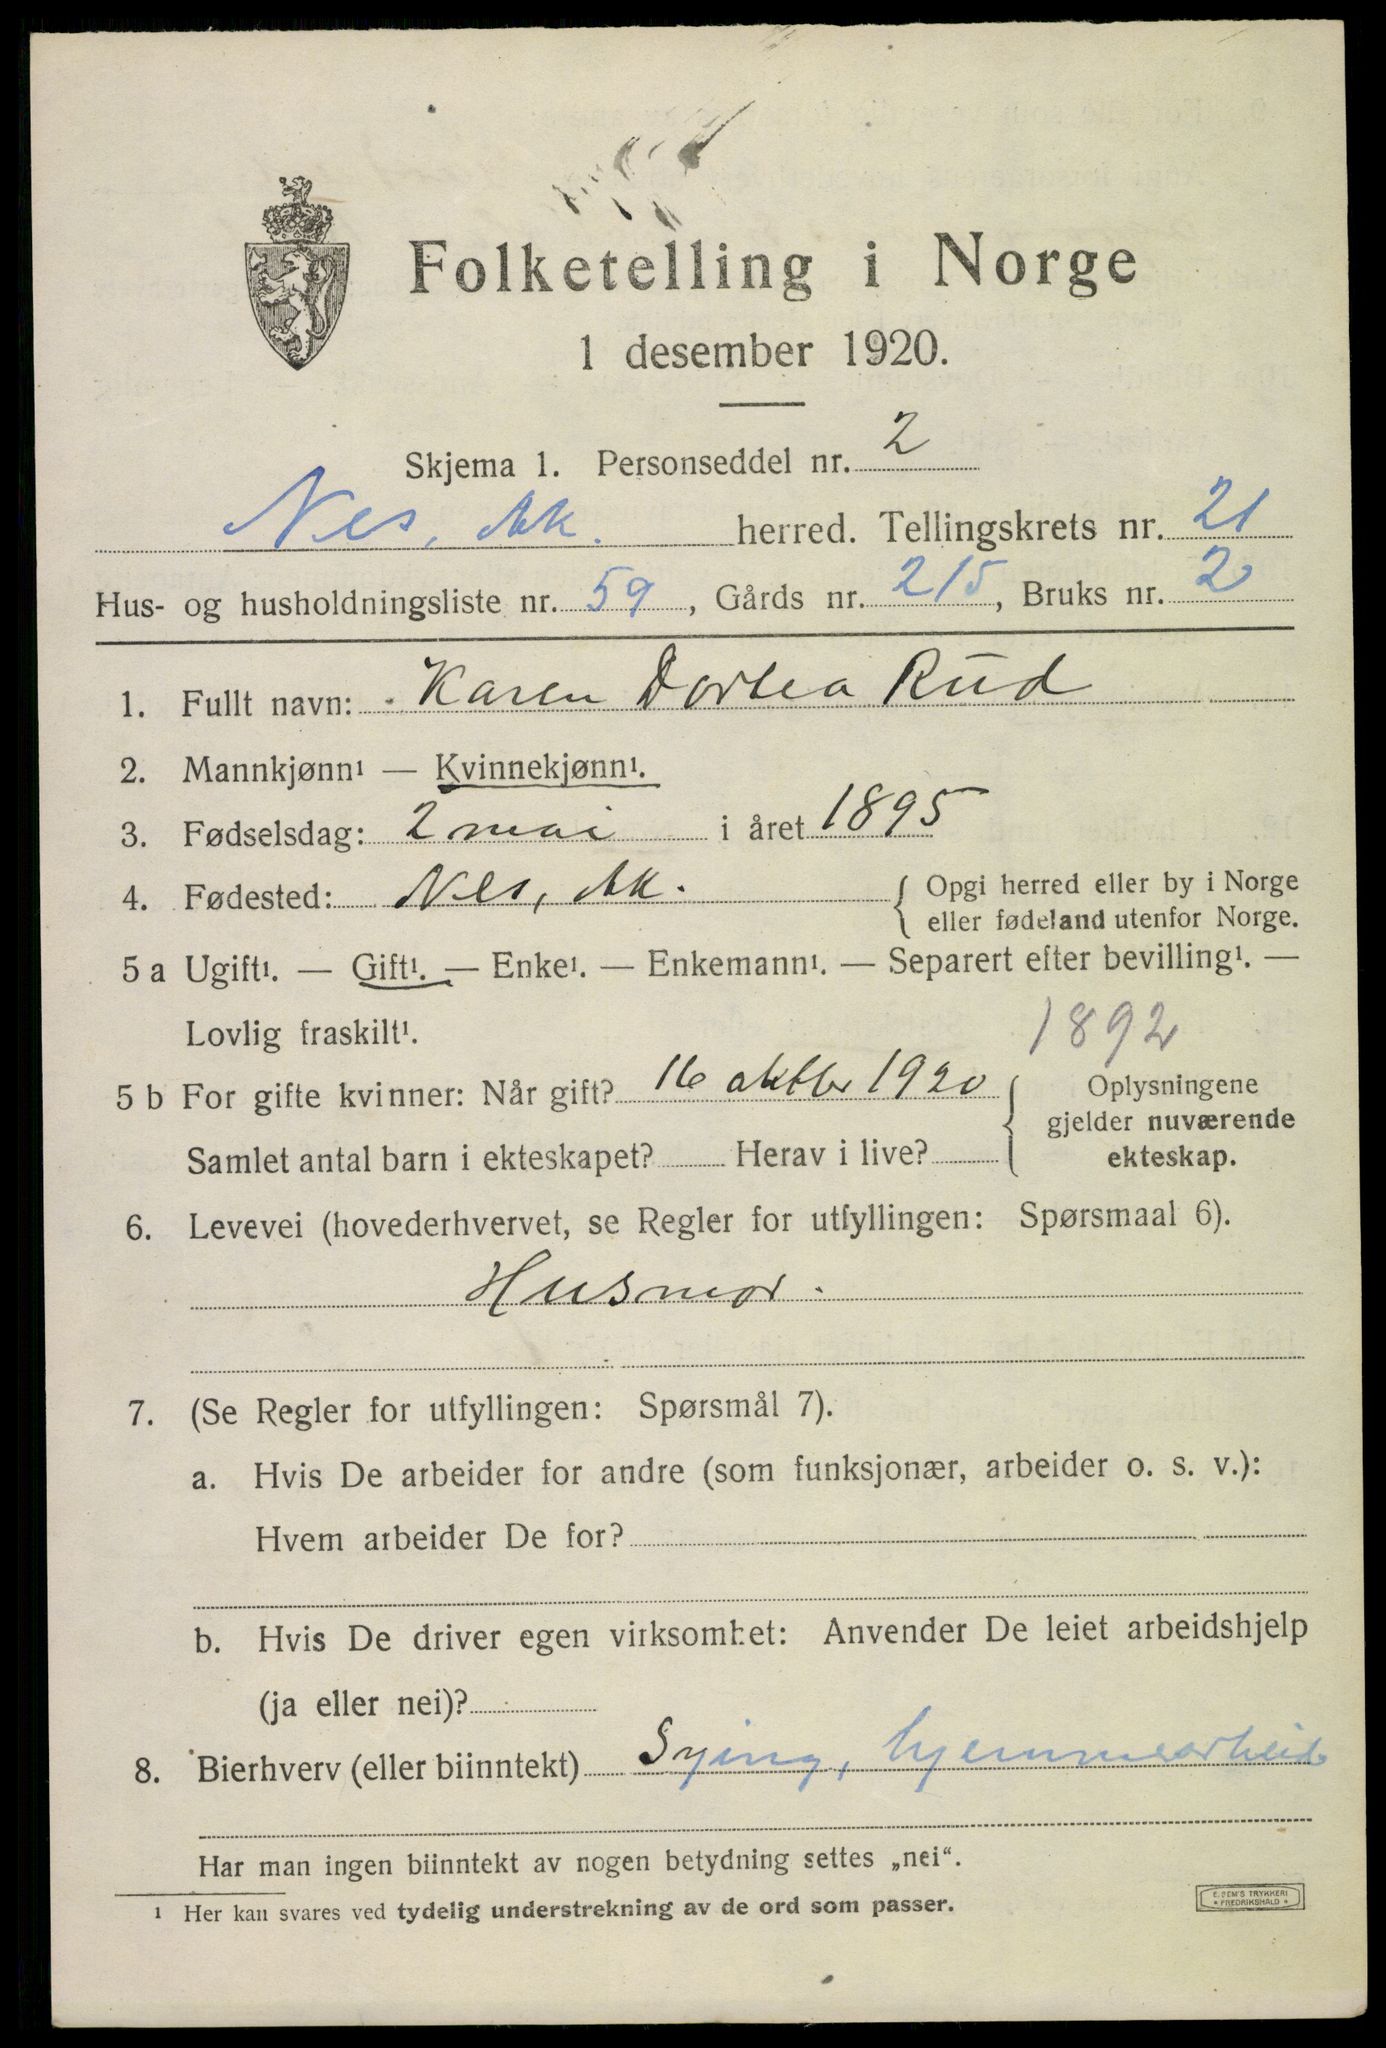 Folketelling i Norge
1 desember 1920.
Skjema 1. Personseddel nr. 2
Nes, Ak. herred. Tellingskrets nr. 21
Hus- og husholdningsliste nr. 59, Gårds nr. 215, Bruks nr. 2
1. Fullt navn: Karen Dortea Rud
2. Mannkjønn¹ — Kvinnekjønn¹.
3. Fødselsdag: 2 mai i året 1895
4. Fødested: Nes, Ak. { Opgi herred eller by i Norge
eller fødeland utenfor Norge.
5 a Ugift¹. — Gift¹. — Enke¹. — Enkemann¹. — Separert efter bevilling¹. —
Lovlig fraskilt¹.
1892
5 b For gifte kvinner: Når gift? 16 oktbr 1920 { Oplysningene
gjelder nuværende
Samlet antal barn i ekteskapet? Herav i live? ekteskap.
6. Levevei (hovederhvervet, se Regler for utfyllingen: Spørsmaal 6).
Husmor.
7. (Se Regler for utfyllingen: Spørsmål 7).
a. Hvis De arbeider for andre (som funksjonær, arbeider o. s. v.):
Hvem arbeider De for?
b. Hvis De driver egen virksomhet: Anvender De leiet arbeidshjelp
(ja eller nei)?
8. Bierhverv (eller biinntekt) Sying, hjemmearbeid
Har man ingen biinntekt av nogen betydning settes „nei“.
¹ Her kan svares ved tydelig understrekning av de ord som passer.
E. SEM'S TRYKKERI
* FREDRIKSHALD *